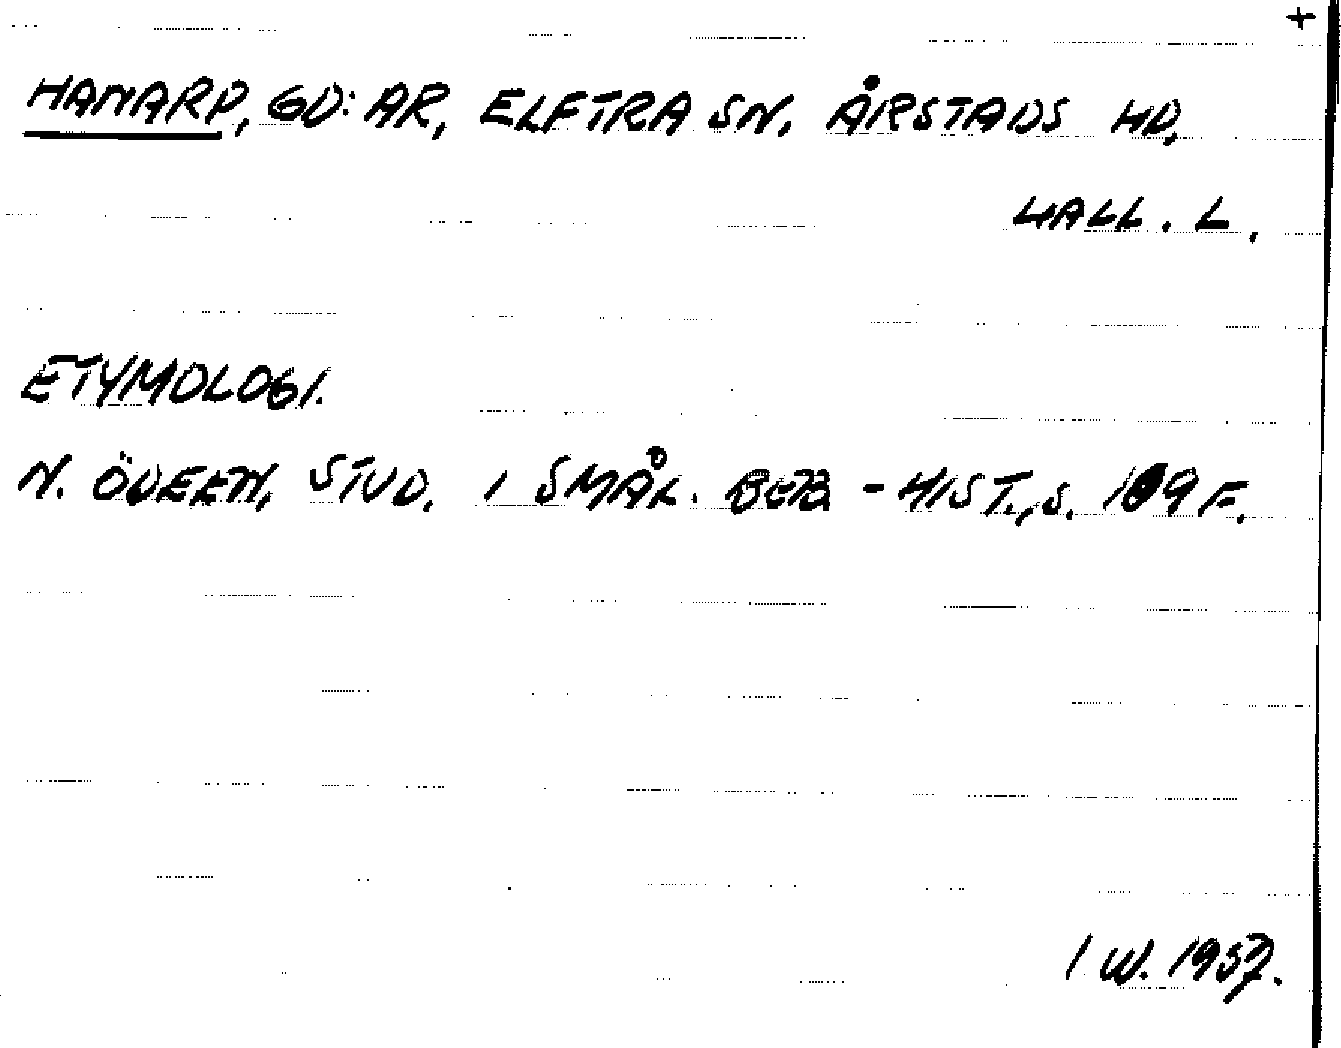 +
HAMARP, GD:AR, ELFTRA SN, ÅRSTADS HD,
HALL. L.
ETYMOLOGI.
N. ÖDEEN, STUD. I SMÅL. BEB-HIST., S. 109 F.
I W. 1937.